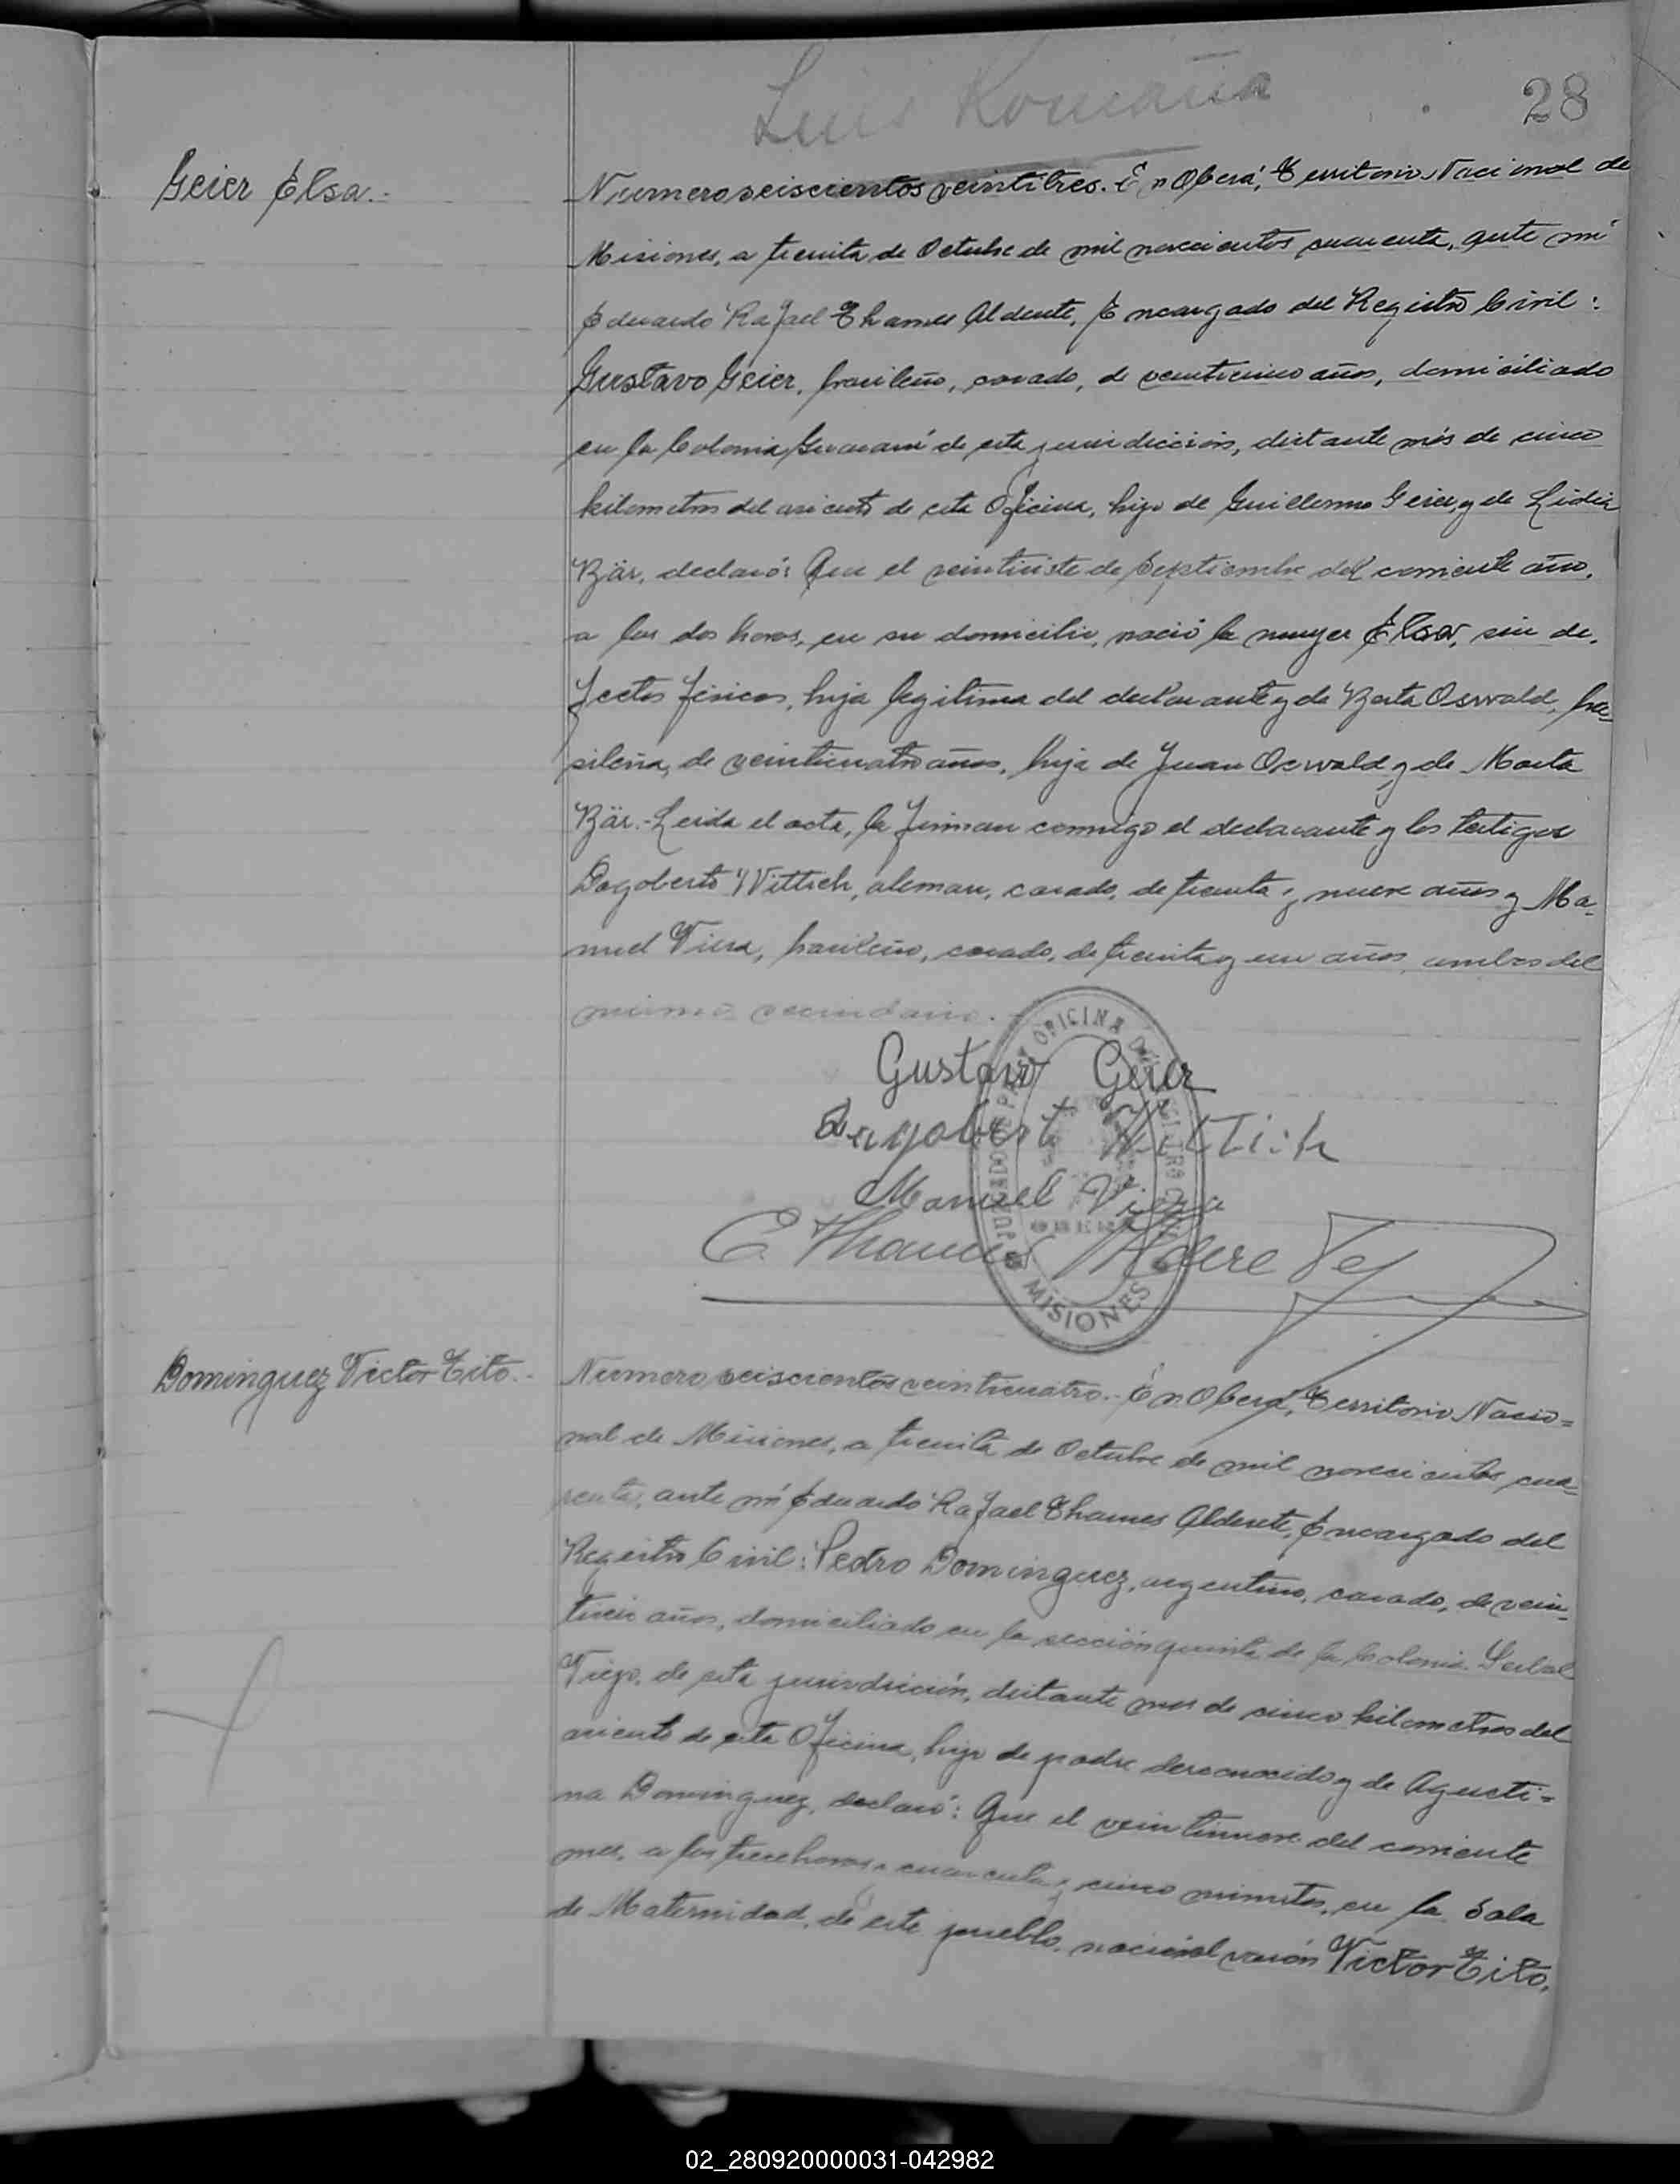 Luis Romaña
28
Geier Elsa.-
Numero seiscientos veintitres. En Oberá, Territorio Nacional de
Misiones, a treinta de Octubre de mil novecientos cuarenta, ante mí
Eduardo Rafael Thames Alderete, Encargado del Registro Civil:
Gustavo Geier, brasileño, casado, de veinticinco años, domiciliado
en la Colonia Guaraní de esta jurisdicción, distante más de cinco
kilometros del asiento de esta Oficina, hijo de Guillermo Geier, y de Lidia
Bär, declaró: Que el veintisiete de Septiembre del corriente año,
a las dos horas, en su domicilio, nació la mujer Elsa, sin de-
fectos físicos, hija legítima del declarante y de Berta Oswald, bra-
sileña, de veinticuatro años, hija de Juan Oswald y de Marta
Bär.- Leida el acta, la firman conmigo el declarante y los testigos
Dagoberto Wittich, aleman, casado, de treinta y nueve años y Ma-
nuel Viera, brasileño, casado, de treinta y un años, ambos del
mismo vecindario.
Gustavo Geier
Dagobert Wittich
Manuel Viera
E. Thames Alderete
OFICINA
MISIONES
Dominguez Victor Tito.-
Numero seiscientos veinticuatro.- En Oberá, Territorio Nacio=
nal de Misiones, a treinta de Octubre de mil novecientos cua-
renta, ante mí Eduardo Rafael Thames Alderete, Encargado del
Registro Civil: Pedro Dominguez, argentino, casado, de vein-
tiseis años, domiciliado en la sección quinta de la Colonia Yerbal
Viejo, de esta jurisdicción, distante mas de cinco kilometros del
asiento de esta Oficina, hijo de padre desconocido y de Agusti=
na Dominguez, declaró: Que el veintinueve del corriente
mes, a las trece horas y cuarenta y cinco minutos, en la Sala
de Maternidad, de este pueblo, nació el varón Victor Tito,
02_280920000031-042982